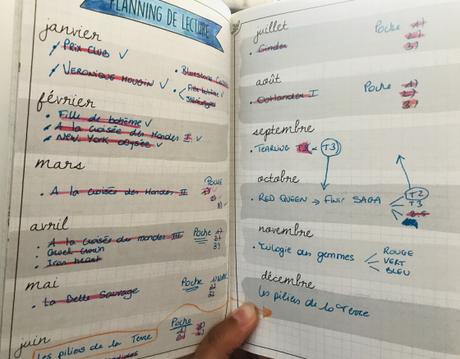 PLANNING DE LECTURE
janvier
PRIX CLUB ✓
VERONIQUE MOUGIN ✓
février
Fille de bohème ✓
A la croisée des Mondes I ✓
NEW YORK odyssée ✓
mars
A la croisée des Mondes II
POCHE
avril
A la croisée des mondes III
Poche
Iron heart
mai
La Belle Sauvage
Poche
juin
Les piliers de la Terre
Poche
juillet
Cinder
Poche
août
Outlander I
Poche
septembre
TEARLING → T3
octobre
RED QUEEN → Finir SAGA
T2
T3
novembre
Trilogie des gemmes
ROUGE
VERT
BLEU
décembre
Les piliers de la Terre